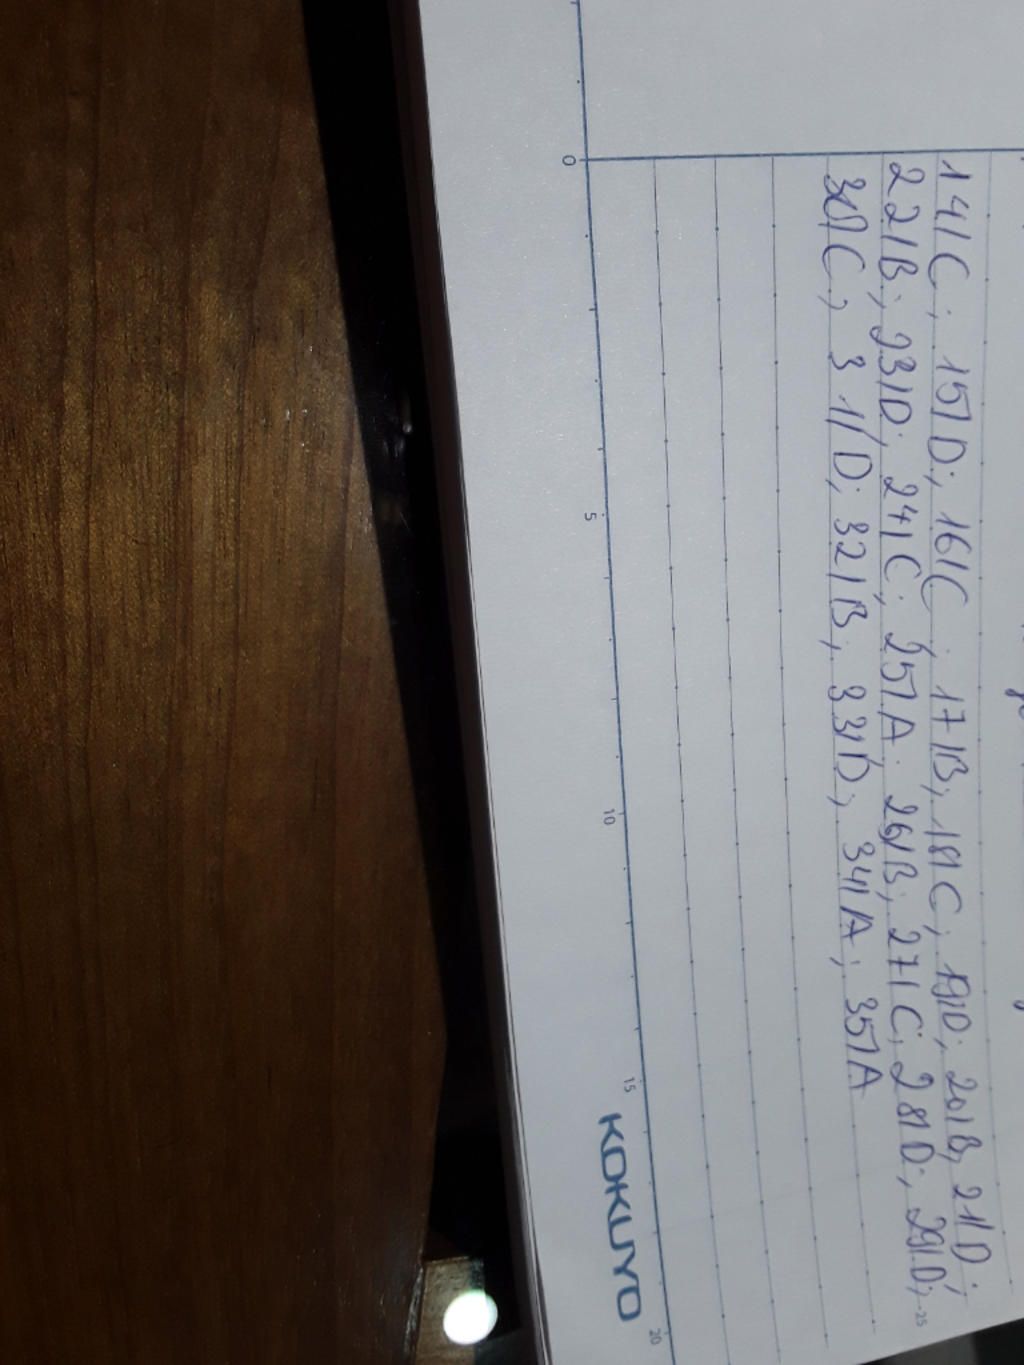 14/C; 15/D; 16/C; 17/B; 18/C; 19/D; 20/B; 21/D;
22/B; 23/D; 24/C; 25/A. 26/B; 27/C; 28/D; 29/D;
30/C; 31/D; 32/B; 33/D; 34/A; 35/A
25
0 5 10 15 20
KOKUYO